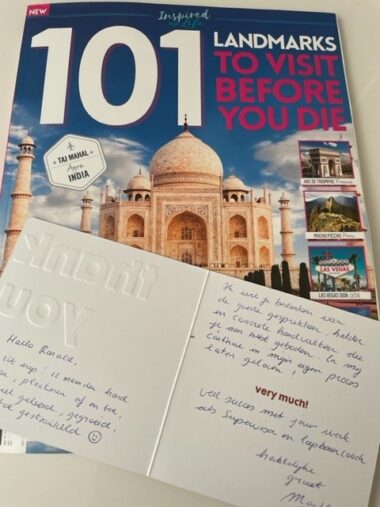 NEW
Inspired
Life
101
LANDMARKS
TO VISIT
BEFORE
YOU DIE
TAJ MAHAL
Agra
INDIA
ARC DE TRIOMPHE France
MACHU PICCHU Peru
LAS VEGAS
LAS VEGAS SIGN USA
thank
you
Hallo Ronald,
zit erop! 12 maanden hard
en, plezieren af en toe,
geleerd, gegroeid,
gestruikeld ☺
Ik wil je bedanken voor
de goede gesprekken, helder
en concrete handvatten die
je aan hebt geboden. En my
continue in mijn eigen proces
laten geloven!
very much!
Veel succes met jouw werk
als Supervisor en loopbaancoach
hartelijke
groet